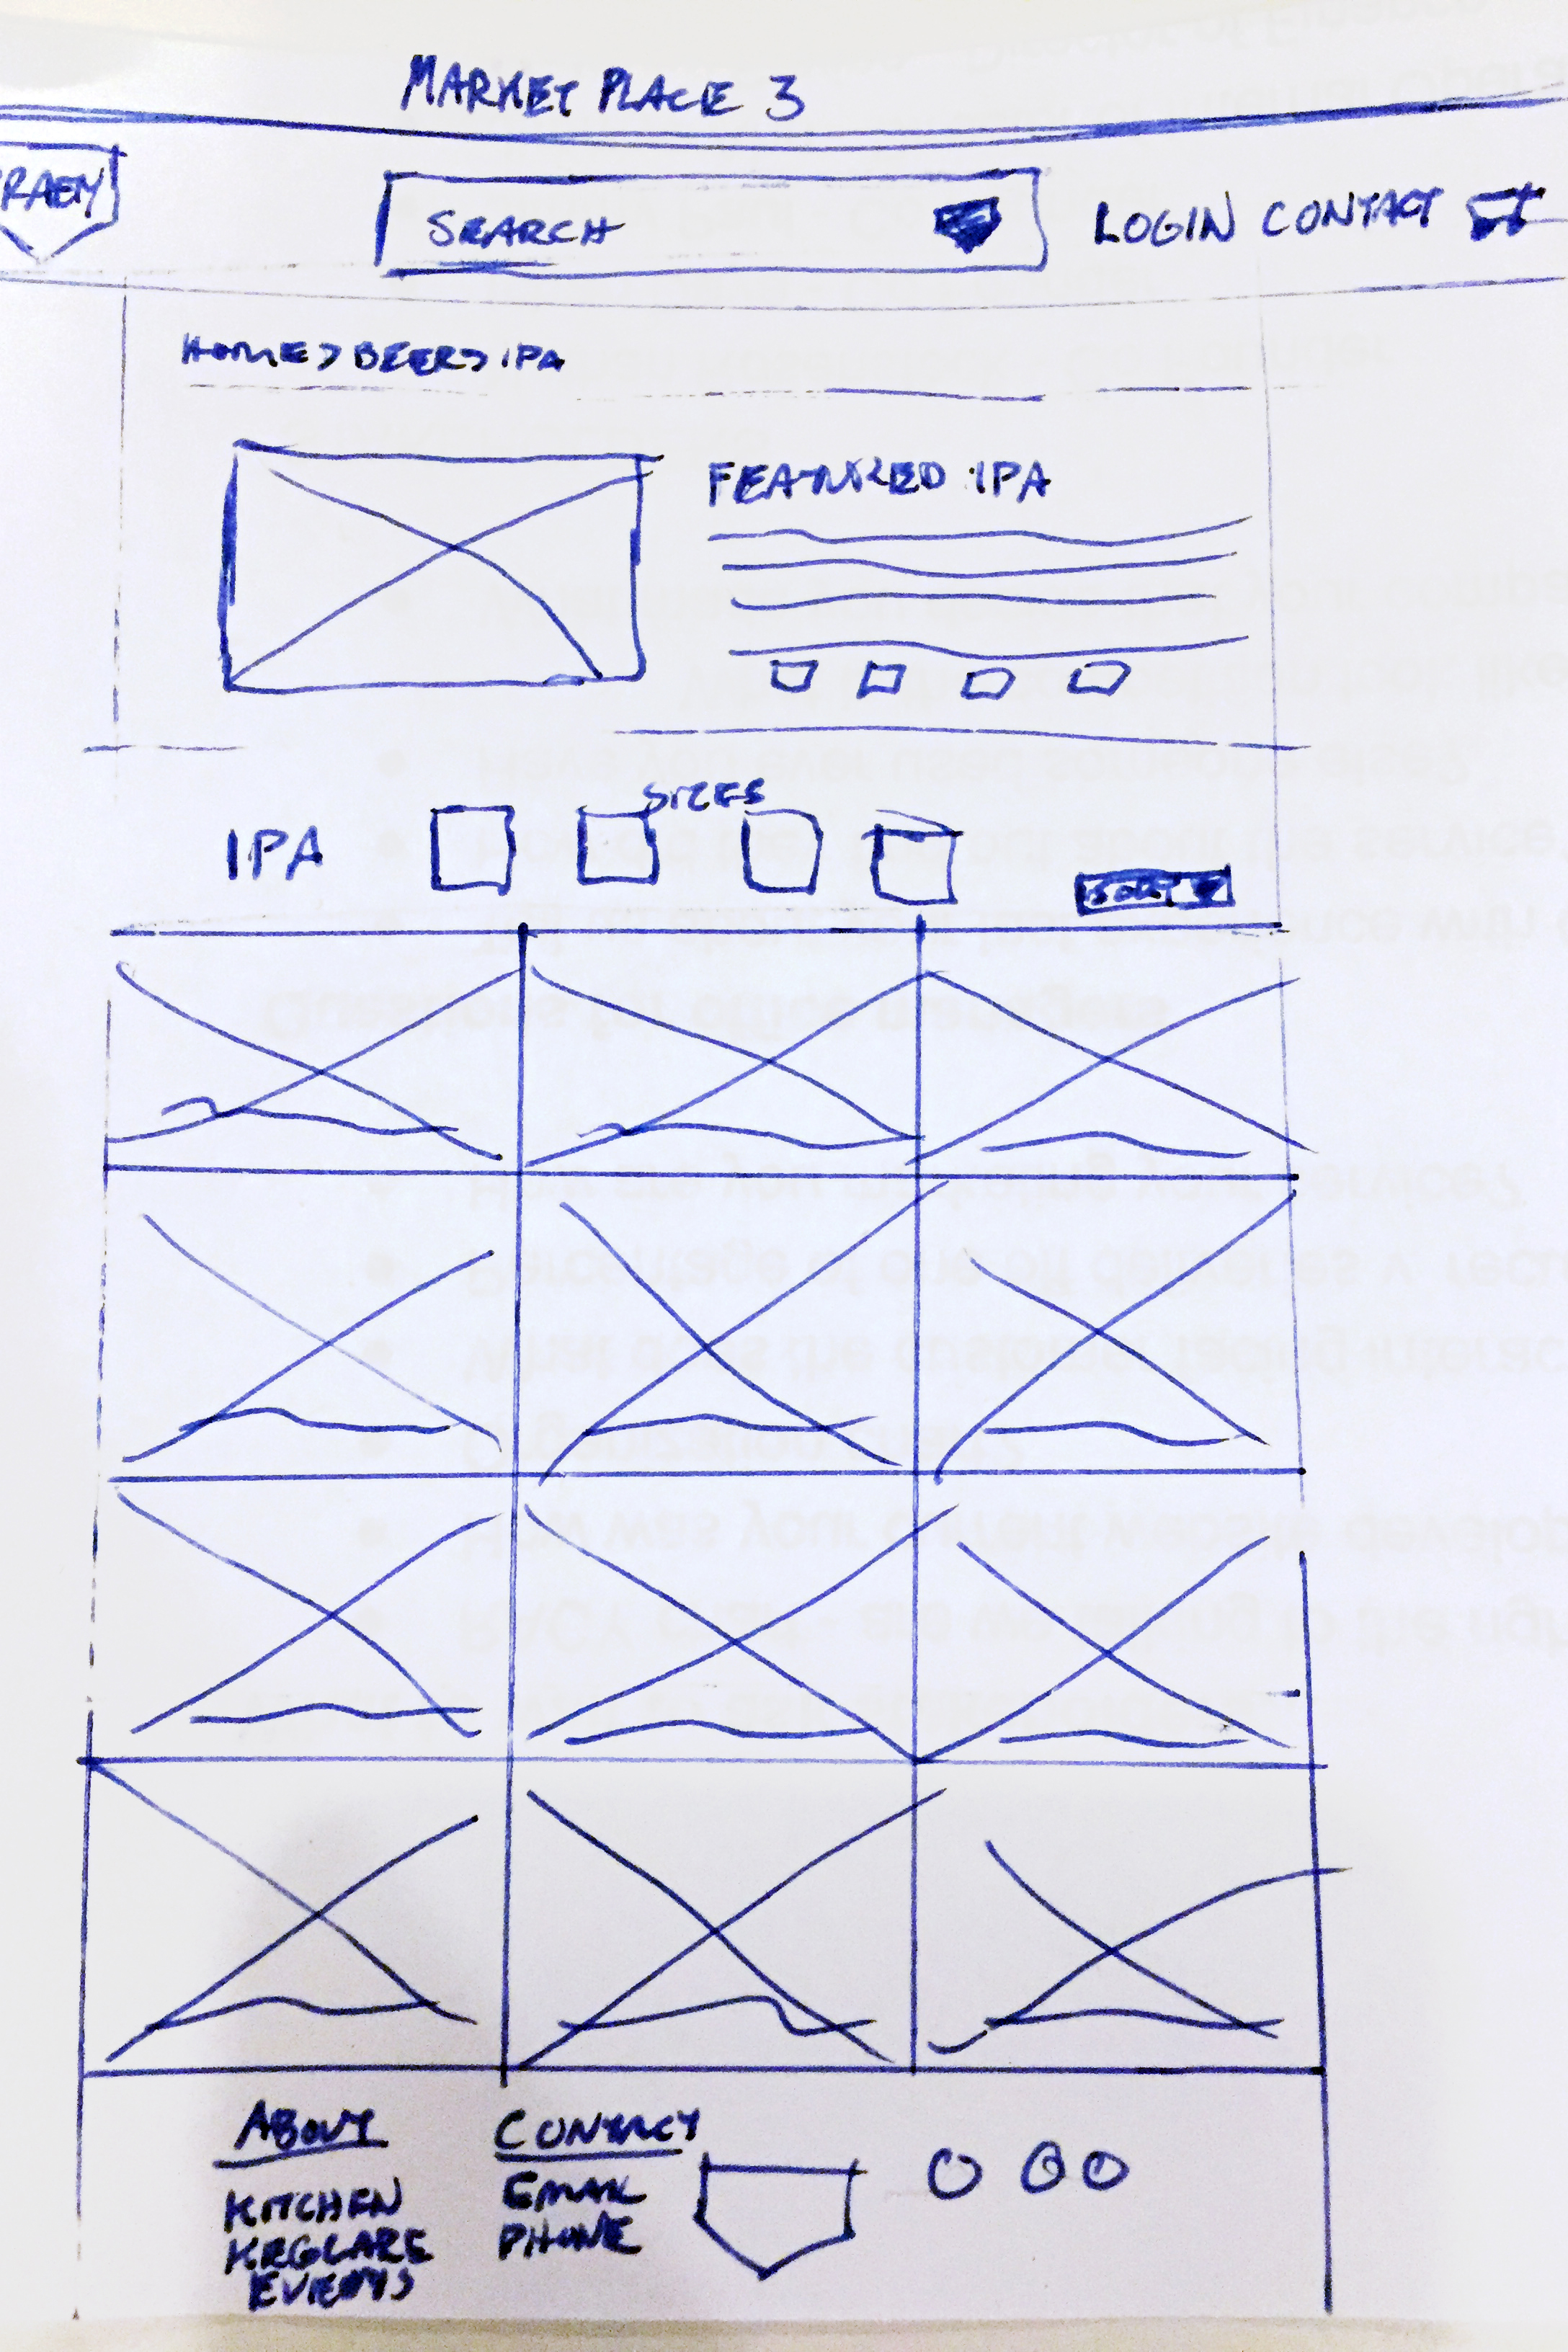 MARKET PLACE 3
SEARCH
LOGIN CONTACT
HOME > BEER > IPA
FEATURED IPA
SIZES
IPA
SORT
ABOUT
KITCHEN
EVENTS
CONTACT
EMAIL
PHONE